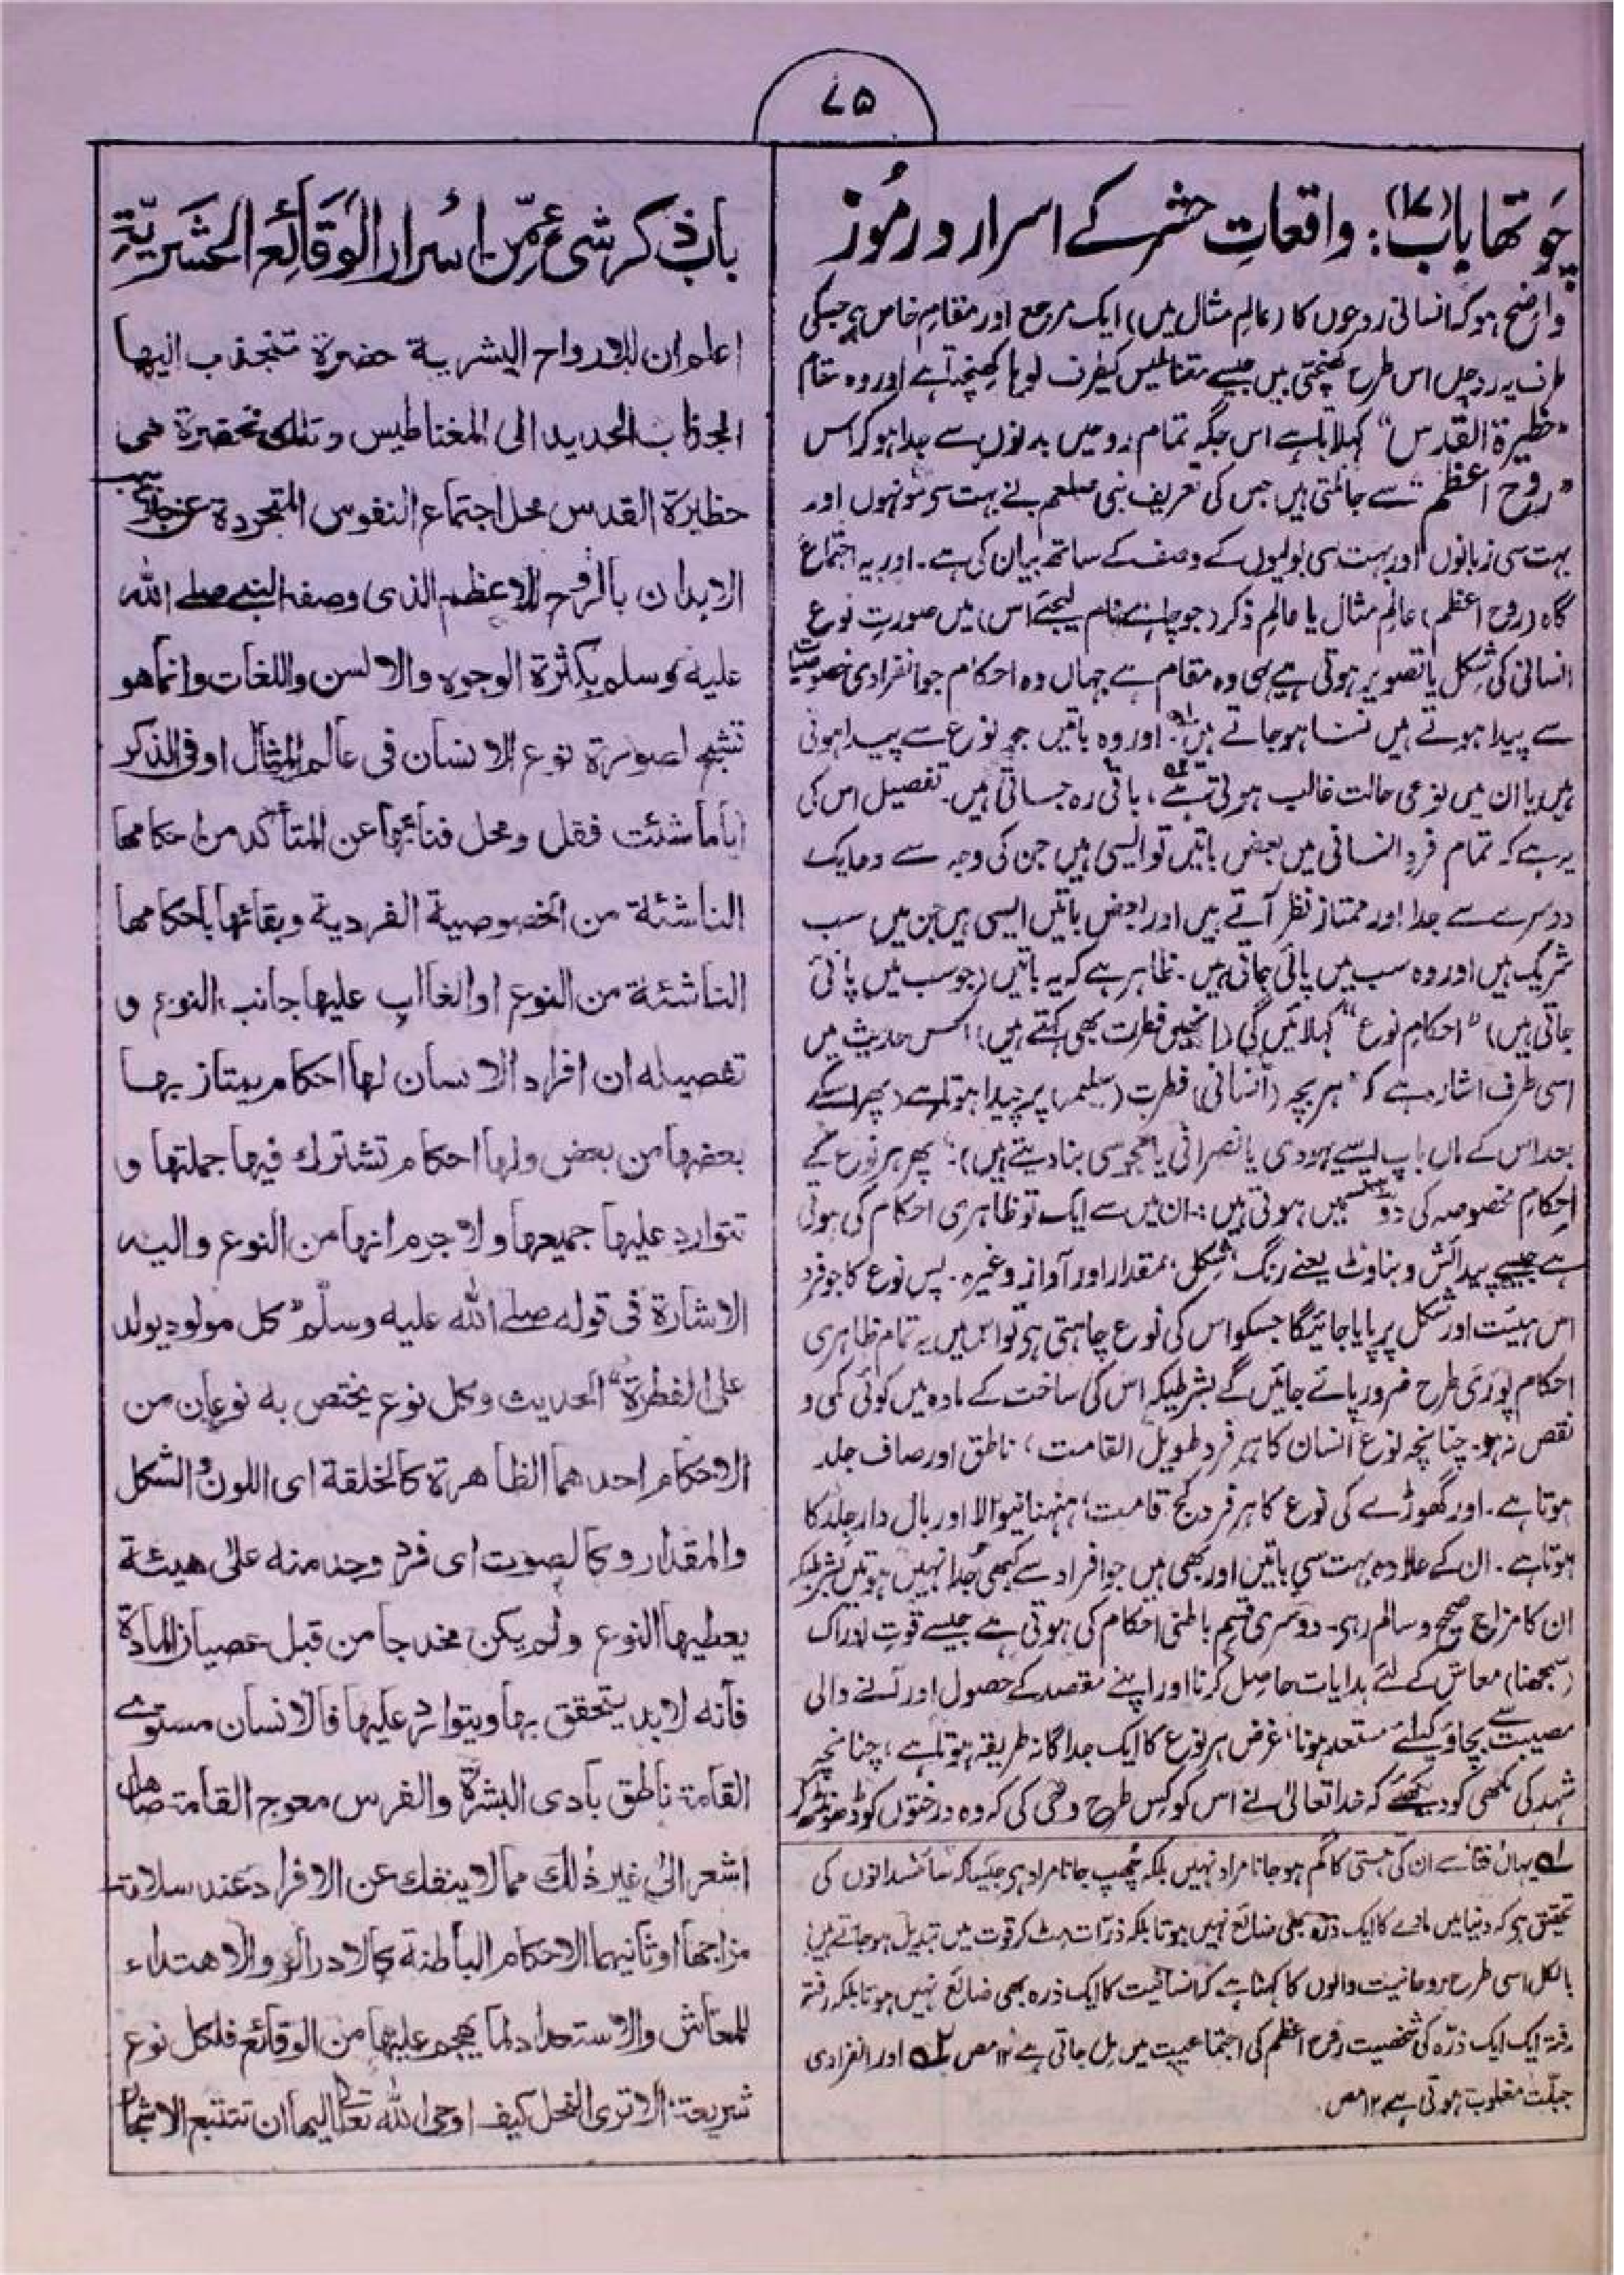 ۷۵
چوتھا باب (۱۷): واقعاتِ حشر کے اسرار و رموز
واضح ہو کہ انسانی روحوں کا (عالمِ مثال میں) ایک مرجع اور مقامِ خاص ہے جسکی
طرف یہ روحیں اس طرح کھنچتی ہیں جیسے مقناطیس کیطرف لوہا کھنچتا ہے اور وہ مقام
"حظیرۃ القدس" کہلاتا ہے اس جگہ تمام روحیں بدنوں سے جدا ہو کر اس
"روح اعظم" سے جا ملتی ہیں جس کی تعریف نبی صلعم نے بہت سی مونہوں اور
بہت سی زبانوں اور بہت سی بولیوں کے وصف کے ساتھ بیان کی ہے۔ اور یہ اجتماع
گاہ (روح اعظم) عالمِ مثال یا عالمِ ذکر (جو چاہے نام لیجئے اس) میں صورتِ نوع
انسانی کی شکل یا تصویر ہوتی ہے یہی وہ مقام ہے جہاں وہ احکام جو انفرادی خصوصیات
سے پیدا ہوتے ہیں فنا ہو جاتے ہیں۔ لہ اور وہ باتیں جو نوع سے پیدا ہوتی
ہیں یا ان میں نوعی حالت غالب ہوتی ہے ۲ہ، باقی رہ جاتی ہیں۔ تفصیل اس کی
یہ ہے کہ تمام فردِ انسانی میں بعض باتیں تو ایسی ہیں جن کی وجہ سے وہ ایک
دوسرے سے جدا اور ممتاز نظر آتے ہیں اور بعض باتیں ایسی ہیں جن میں سب
شریک ہیں اور وہ سب میں پائی جاتی ہیں۔ ظاہر ہے کہ یہ باتیں (جو سب میں پائی
جاتی ہیں) "احکامِ نوع" کہلائیں گی (انھیں فطرت بھی کہتے ہیں) اس حدیث میں
اسی طرف اشارہ ہے کہ "ہر بچہ (انسانی) فطرت (سلیمہ) پر پیدا ہوتا ہے (پھر اسکے
بعد اس کے ماں باپ اسے یہودی یا نصرانی یا مجوسی بنا دیتے ہیں)"۔ پھر ہر نوع کے
احکامِ مخصوصہ کی دو قسمیں ہوتی ہیں:۔ ان میں سے ایک تو ظاہری احکام کی ہوتی
ہے جیسے پیدائش و بناوٹ یعنے رنگ، شکل، مقدار اور آواز وغیرہ۔ پس نوع کا جو فرد
اس ہیئت اور شکل پر پایا جائیگا جسکو اس کی نوع چاہتی ہو تو اس میں یہ تمام ظاہری
احکام پوری طرح ضرور پائے جائیں گے بشرطیکہ اس کی ساخت کے مادہ میں کوئی کمی و
نقص نہ ہو۔ چنانچہ نوع انسان کا ہر فرد طویل القامت، ناطق اور صاف جلد
ہوتا ہے۔ اور گھوڑے کی نوع کا ہر فرد کج قامت، ہنہنانیوالا اور بال دار جلد کا
ہوتا ہے۔ ان کے علاوہ بہت سی باتیں اور بھی ہیں جو افراد سے کبھی جدا نہیں ہوتیں بشرطیکہ
ان کا مزاج صحیح و سالم رہے۔ دوسری قسم باطنی احکام کی ہوتی ہے جیسے قوتِ ادراک
(سمجھنا) معاش کے لئے ہدایات حاصل کرنا اور اپنے مقصد کے حصول اور آنے والی
مصیبت سے بچاؤ کیلئے مستعد ہونا، غرض ہر نوع کا ایک جداگانہ طریقہ ہوتا ہے، چنانچہ
شہد کی مکھی کو دیکھئے کہ خدا تعالیٰ نے اس کو کس طرح وحی کی کہ وہ درختوں کو ڈھونڈھ کر
لہ یہاں فنا سے ان کی ہستی کا گم ہو جانا مراد نہیں بلکہ چھپ جانا مراد ہے جیسا کہ سائنسدانوں کی
تحقیق ہے کہ دنیا میں مادے کا ایک ذرہ بھی ضائع نہیں ہوتا بلکہ ذرات ہٹ کر قوت میں تبدیل ہو جاتے ہیں
بالکل اسی طرح روحانیت والوں کا کہنا ہے کہ انسانیت کا ایک ذرہ بھی ضائع نہیں ہوتا بلکہ رفتہ
رفتہ ایک ایک ذرہ کی شخصیت روح اعظم کی اجتماعیت میں مل جاتی ہے ۱۲ مص ۲ہ اور انفرادی
جبلت مغلوب ہوتی ہے ۱۲ مص۔
باب ذکر شیء من اسرار الوقائع الحشریۃ
اعلم ان للارواح البشریۃ حضرۃ تنجذب الیہا
انجذاب الحدید الی المغناطیس وتلک الحضرۃ ھی
حظیرۃ القدس محل اجتماع النفوس المتجردۃ عن جلابیب
الابدان بالروح الاعظم الذی وصفہ النبی صلے اللہ
علیہ وسلم بکثرۃ الوجوہ والالسن واللغات وانما ھو
تشبح لصورۃ نوع الانسان فی عالم المثال او فی الذکر
ایاما شئت فقل ومحل فنائہا عن المتأکد من احکامہا
الناشئۃ من الخصوصیۃ الفردیۃ وبقائہا باحکامہا
الناشئۃ من النوع او الغالب علیہا جانب النوع و
تفصیلہ ان افراد الانسان لہا احکام یمتاز بہا
بعضہا من بعض ولہا احکام تشترک فیہا جملتہا و
تتوارد علیہا جمیعہا ولا جرم انہا من النوع والیہ
الاشارۃ فی قولہ صلے اللہ علیہ وسلّم "کل مولود یولد
علی الفطرۃ" الحدیث وکل نوع یختص بہ نوعان من
الاحکام احدھما الظاھرۃ کالخلقۃ ای اللون والشکل
والمقدار وکالصوت ای فرد وجد منہ علی ھیئۃ
یعطیہا النوع ولم یکن مخدجا من قبل عصیان المادۃ
فانہ لابد یتحقق بہا ویتوارد علیہا فالانسان مستوی
القامۃ ناطق بادی البشرۃ والفرس معوج القامۃ صاہل
اشعر الی غیر ذلک مما لا ینفک عن الافراد عند سلامۃ
مزاجھا وثانیہما الاحکام الباطنۃ کالادراک والاھتداء
للمعاش والاستعداد لما یھجم علیہا من الوقائع فلکل نوع
شریعۃ الا تری النحل کیف اوحی اللہ تعالی الیہا ان تتتبع الاشجار